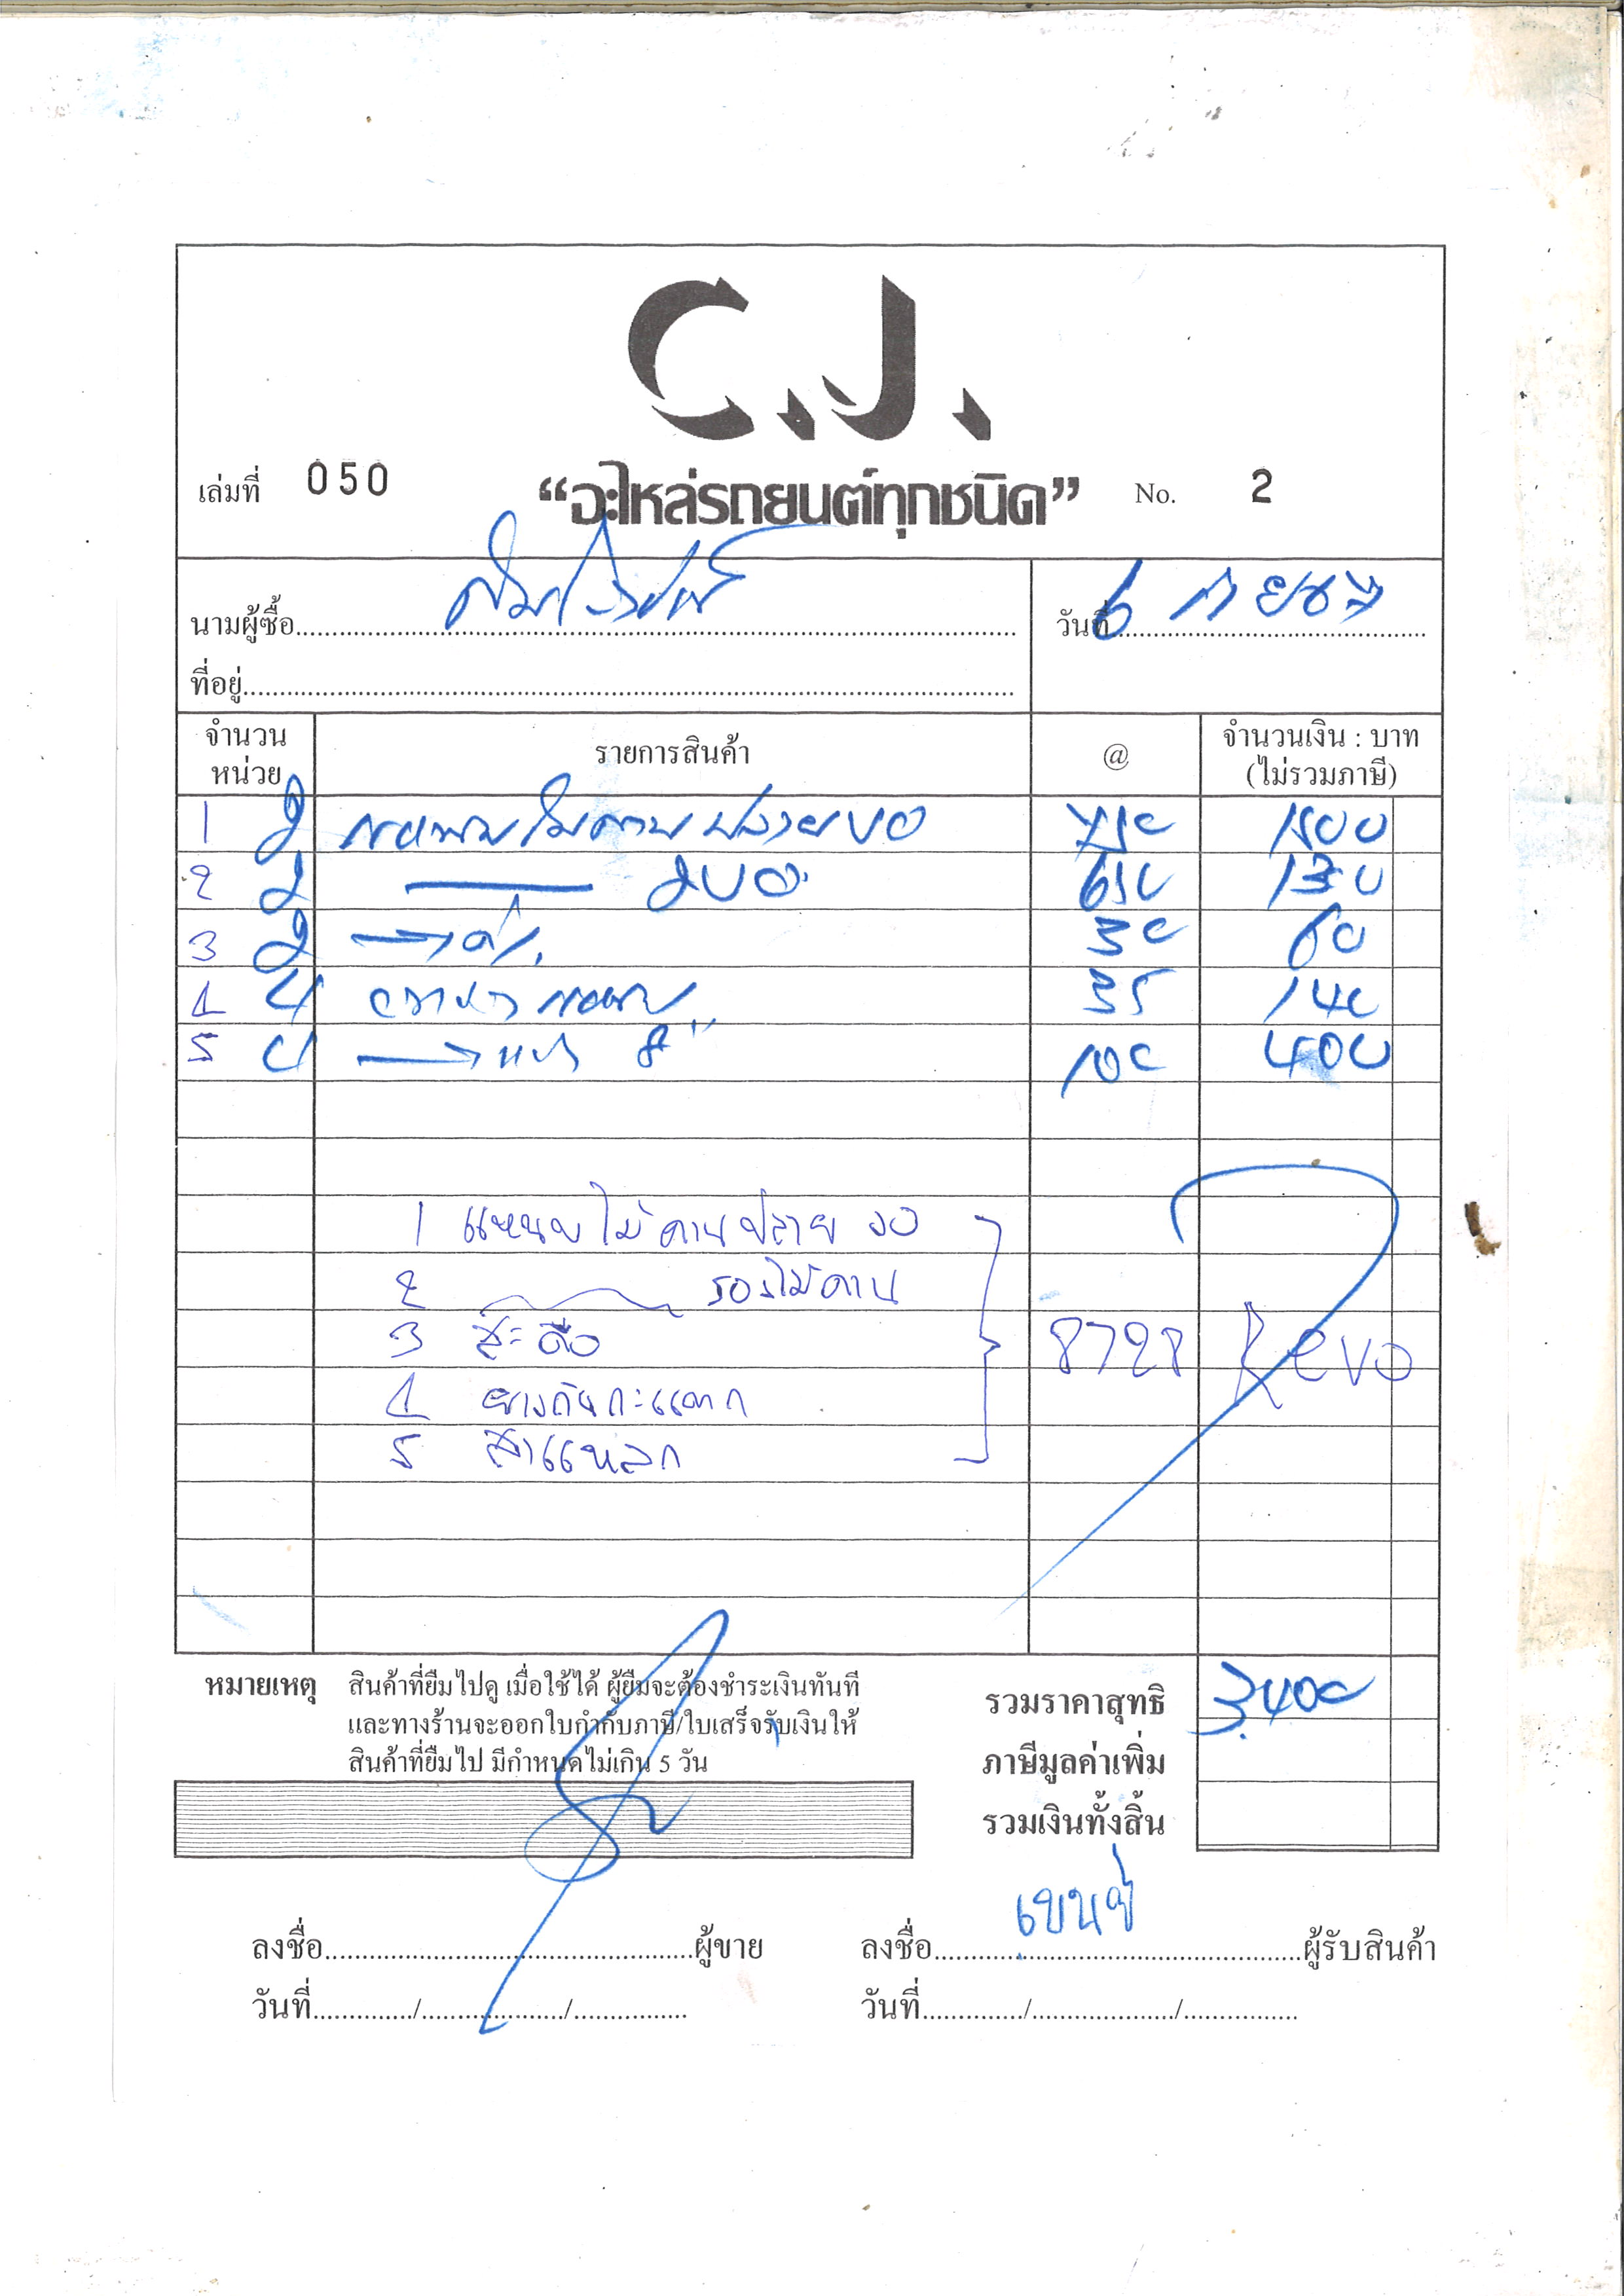 C.J.
เล่มที่ 050 “อะไหล่รถยนต์ทุกชนิด” No. 2
นามผู้ซื้อ วันที่ 6
ที่อยู่
จำนวน หน่วย รายการสินค้า @ จำนวนเงิน : บาท (ไม่รวมภาษี)
1 2 แหนบไม้คานปลายงอ 750 1500
2 2 2 งอ 650 1300
3 2 30 60
4 4 35 140
5 4 8" 100 400
1 แหนบไม้คานปลาย งอ
2 รองไม้คาน
3 สะดือ 8728 Revo
4 ยางกันกะแทก
5 สาแหลก
หมายเหตุ สินค้าที่ยืมไปดู เมื่อใช้ได้ ผู้ยืมจะต้องชำระเงินทันที
และทางร้านจะออกใบกำกับภาษี/ใบเสร็จรับเงินให้
สินค้าที่ยืมไป มีกำหนดไม่เกิน 5 วัน
รวมราคาสุทธิ 3,400
ภาษีมูลค่าเพิ่ม
รวมเงินทั้งสิ้น
ลงชื่อ ผู้ขาย ลงชื่อ ผู้รับสินค้า
วันที่ / / วันที่ / /